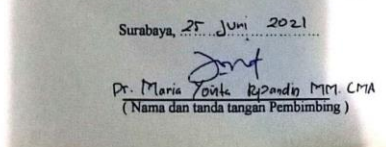 Surabaya, 25 Juni 2021
Dr. Maria Yovita R. Pandin MM. CMA
( Nama dan tanda tangan Pembimbing )